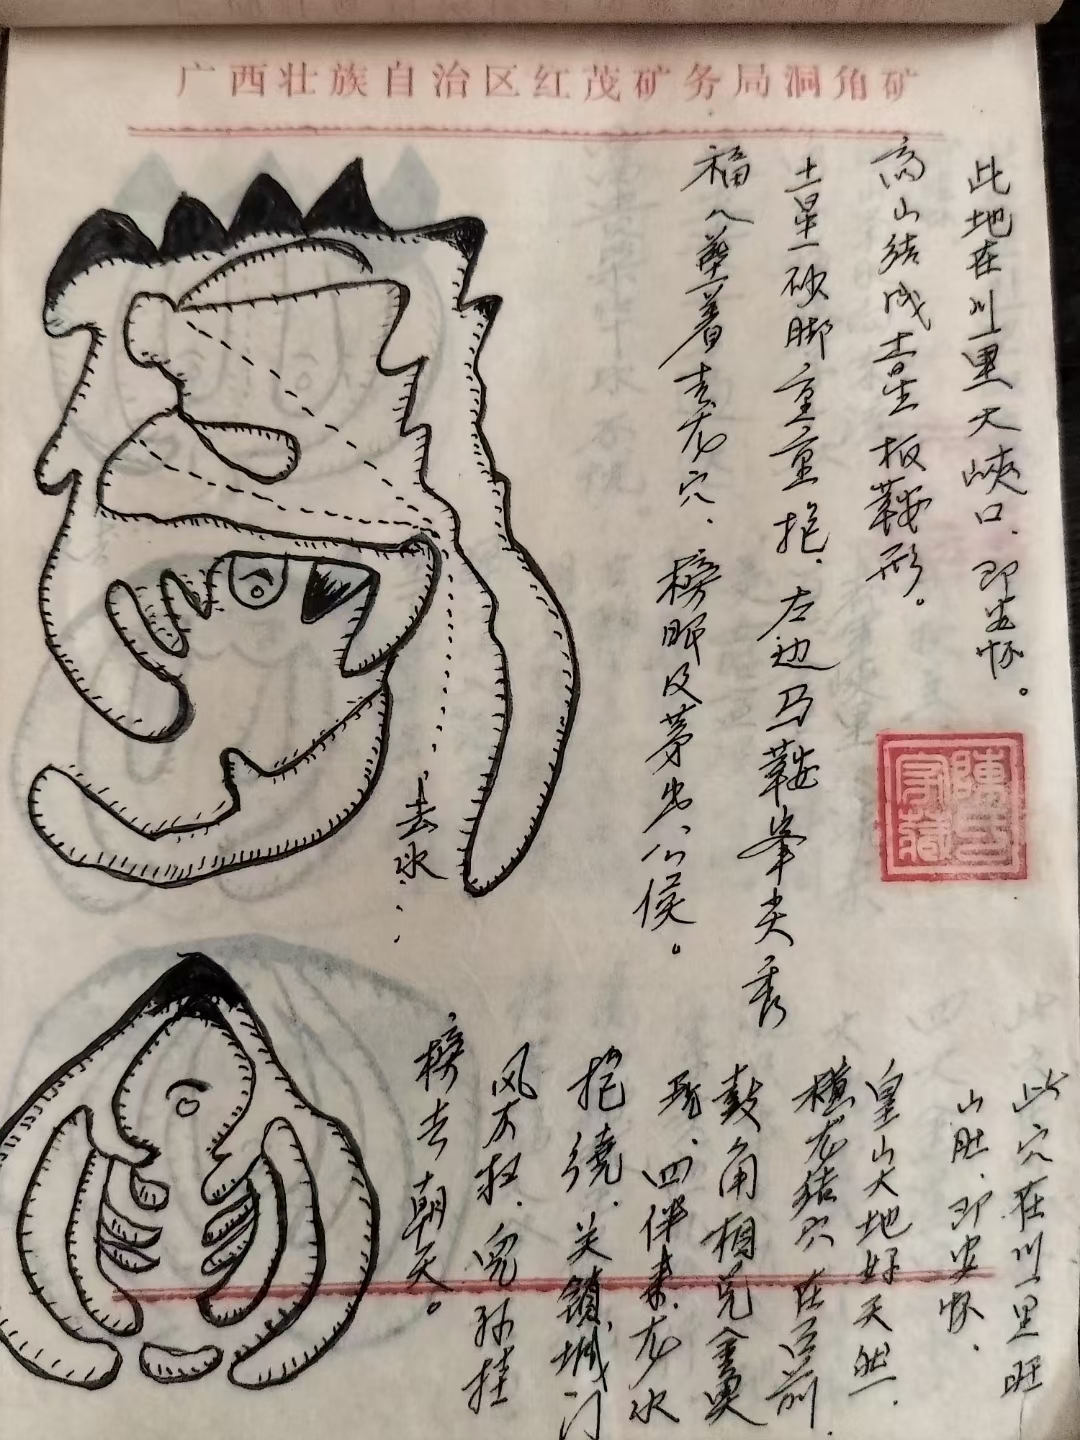 广西壮族自治区红茂矿务局洞角矿
此地在川一里大峡口、即安怀。
高山结成壹坐板鞍形。
土星一砂脚重重抱、左边马鞍峯尖秀
福人葬着真龙穴、榜眼及茅出公侯。
去水
此穴在川一里旺
山肚、即安怀、
皇山大地好天然、
横龙结穴在面前、
鼓角相
四伴来龙水
抱绕、关锁城门
风不扠、儿孙挂
榜去朝天。